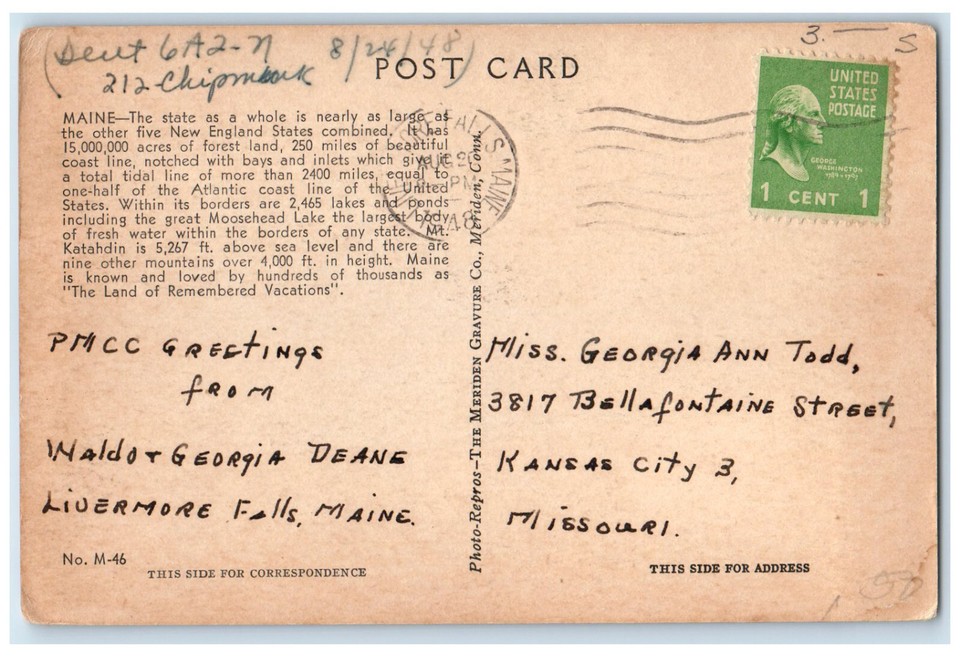 (Sent 6A2-N 8/24/48)
212 Chipmunk
POST CARD
3.— S
MAINE—The state as a whole is nearly as large as
the other five New England States combined. It has
15,000,000 acres of forest land, 250 miles of beautiful
coast line, notched with bays and inlets which give it
a total tidal line of more than 2400 miles, equal to
one-half of the Atlantic coast line of the United
States. Within its borders are 2,465 lakes and ponds
including the great Moosehead Lake the largest body
of fresh water within the borders of any state. Mt.
Katahdin is 5,267 ft. above sea level and there are
nine other mountains over 4,000 ft. in height. Maine
is known and loved by hundreds of thousands as
"The Land of Remembered Vacations".
FALLS MAINE
AUG 20
PM
UNITED
STATES
POSTAGE
GEORGE
WASHINGTON
1789-1797
1 CENT 1
PMCC GREETINGS
FROM
Waldo + GEORGIA DEANE
LIVERMORE Falls, MAINE.
No. M-46
THIS SIDE FOR CORRESPONDENCE
Photo-Repros—THE MERIDEN GRAVURE CO., Meriden, Conn.
Miss. GEORGIA ANN Todd,
3817 BellafontAINE STREET,
KANSAS City 3,
Missouri.
THIS SIDE FOR ADDRESS